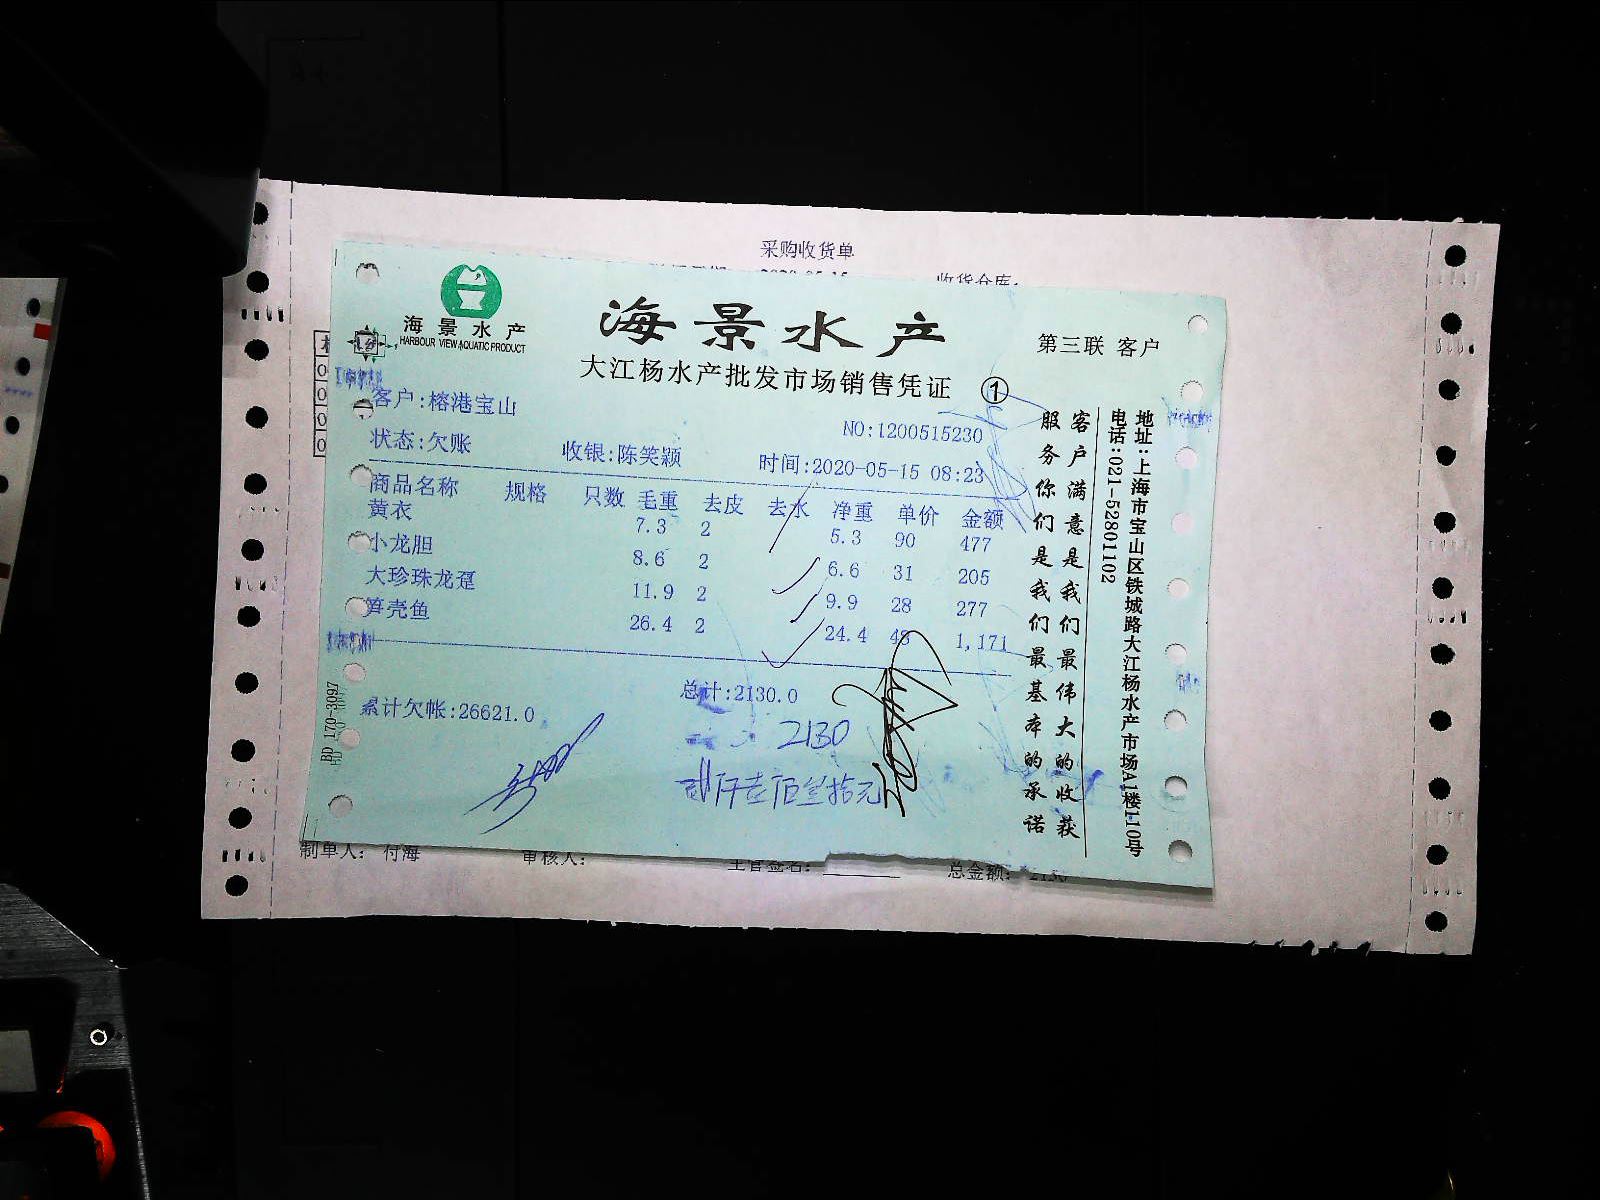 采购收货单
2020-05-15
收货仓库:
海景水产
HARBOUR VIEW AQUATIC PRODUCT
海景水产
大江杨水产批发市场销售凭证 ①
第三联 客户
客户:榕港宝山
NO:1200515230
状态:欠账 收银:陈笑颖 时间:2020-05-15 08:23
商品名称 规格 只数 毛重 去皮 去水 净重 单价 金额
黄衣 7.3 2 5.3 90 477
小龙胆 8.6 2 6.6 31 205
大珍珠龙趸 11.9 2 9.9 28 277
笋壳鱼 26.4 2 24.4 48 1,171
总计:2130.0
累计欠帐:26621.0
2130
贰仟壹佰叁拾元
BD 170-3097
客户满意是我们最伟大的收获
服务你们是我们最基本的承诺
地址:上海市宝山区铁城路大江杨水产市场A1楼110号
电话:021-52801102
制单人: 付海 审核人: 主管签名: 总金额: 2130